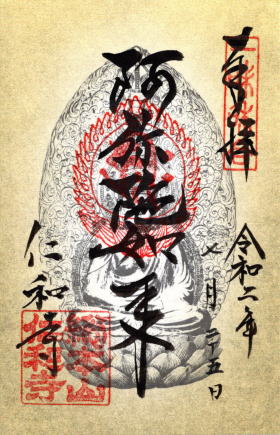 奉拝
令和二年
七月二十五日
阿弥陀如来
仁和寺
総本山
仁和寺